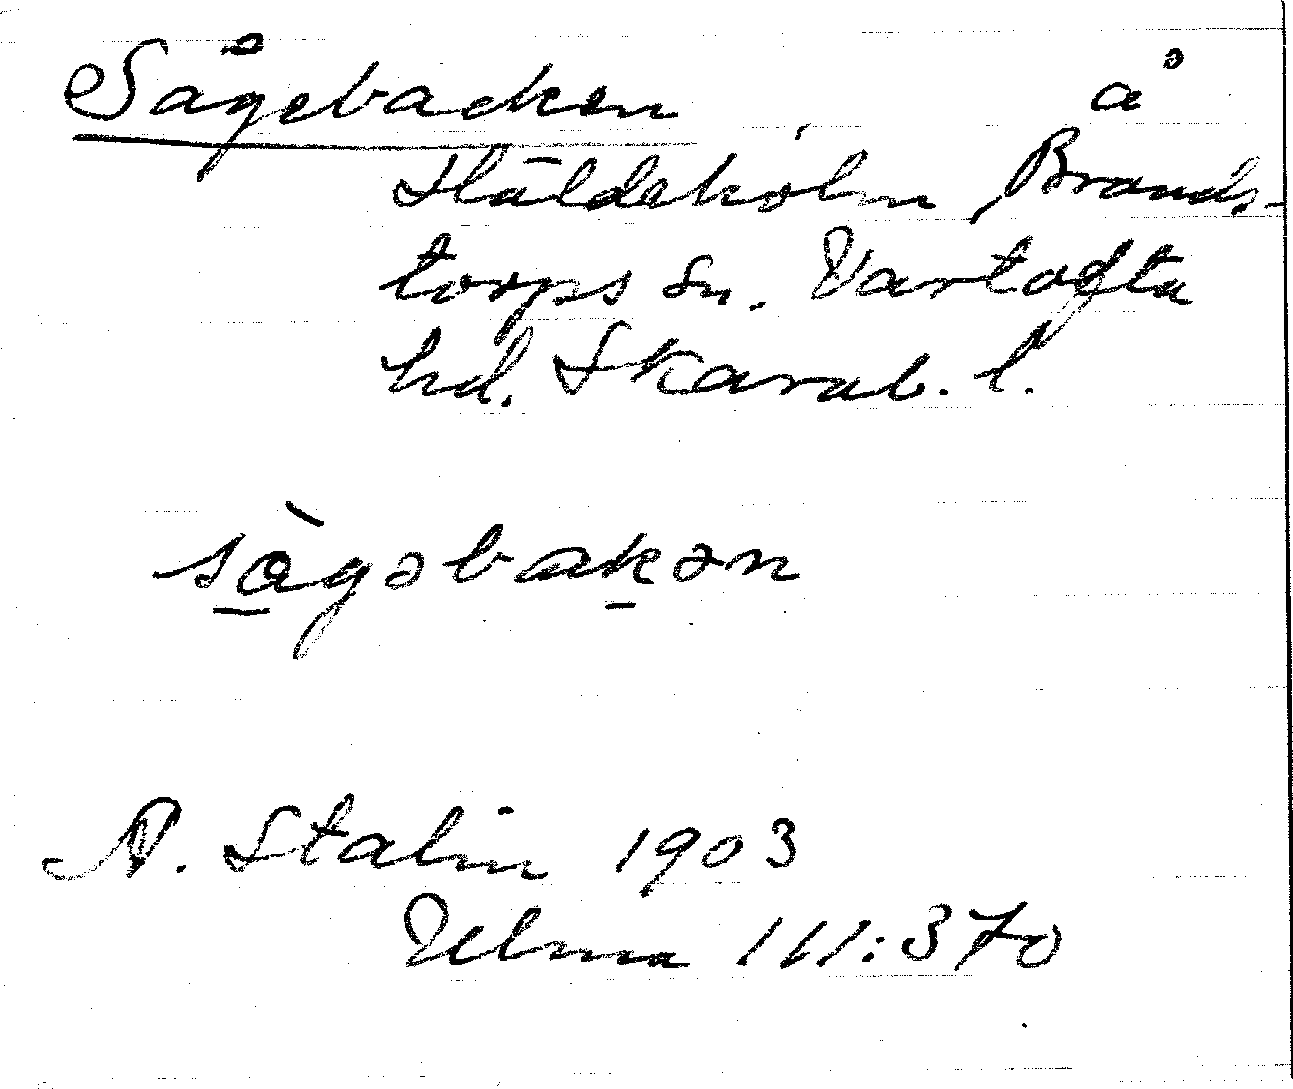 Sågebacken å
Häldeholm, Brands-
torps sn. Vartofta
hd. Skarab. l.
sàgəbakən
A. Stalin 1903
Ulma 111:370